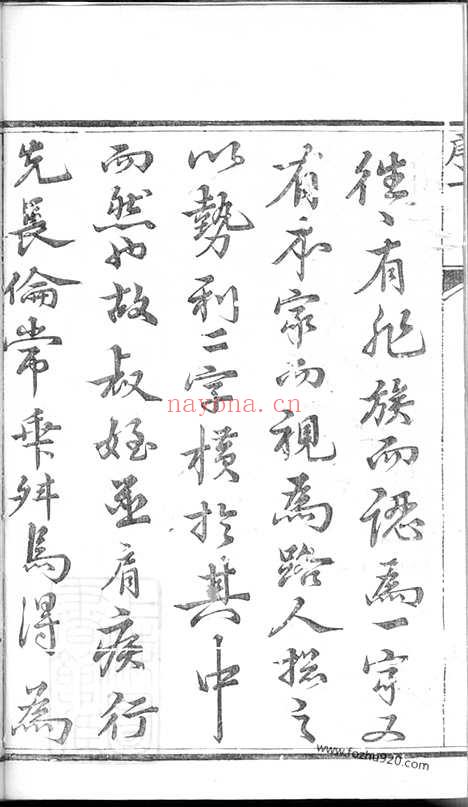 序一
往〻有非族而認爲一家又
有本家而視爲路人揔之
以勢利二字橫於其中
而然也故叔姪並肩疾行
先長倫常乖舛焉得爲
nayona.cn
www.fozhu920.com